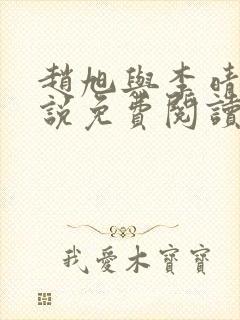 趙旭與李晴
說免費閱讀
我愛木寶寶